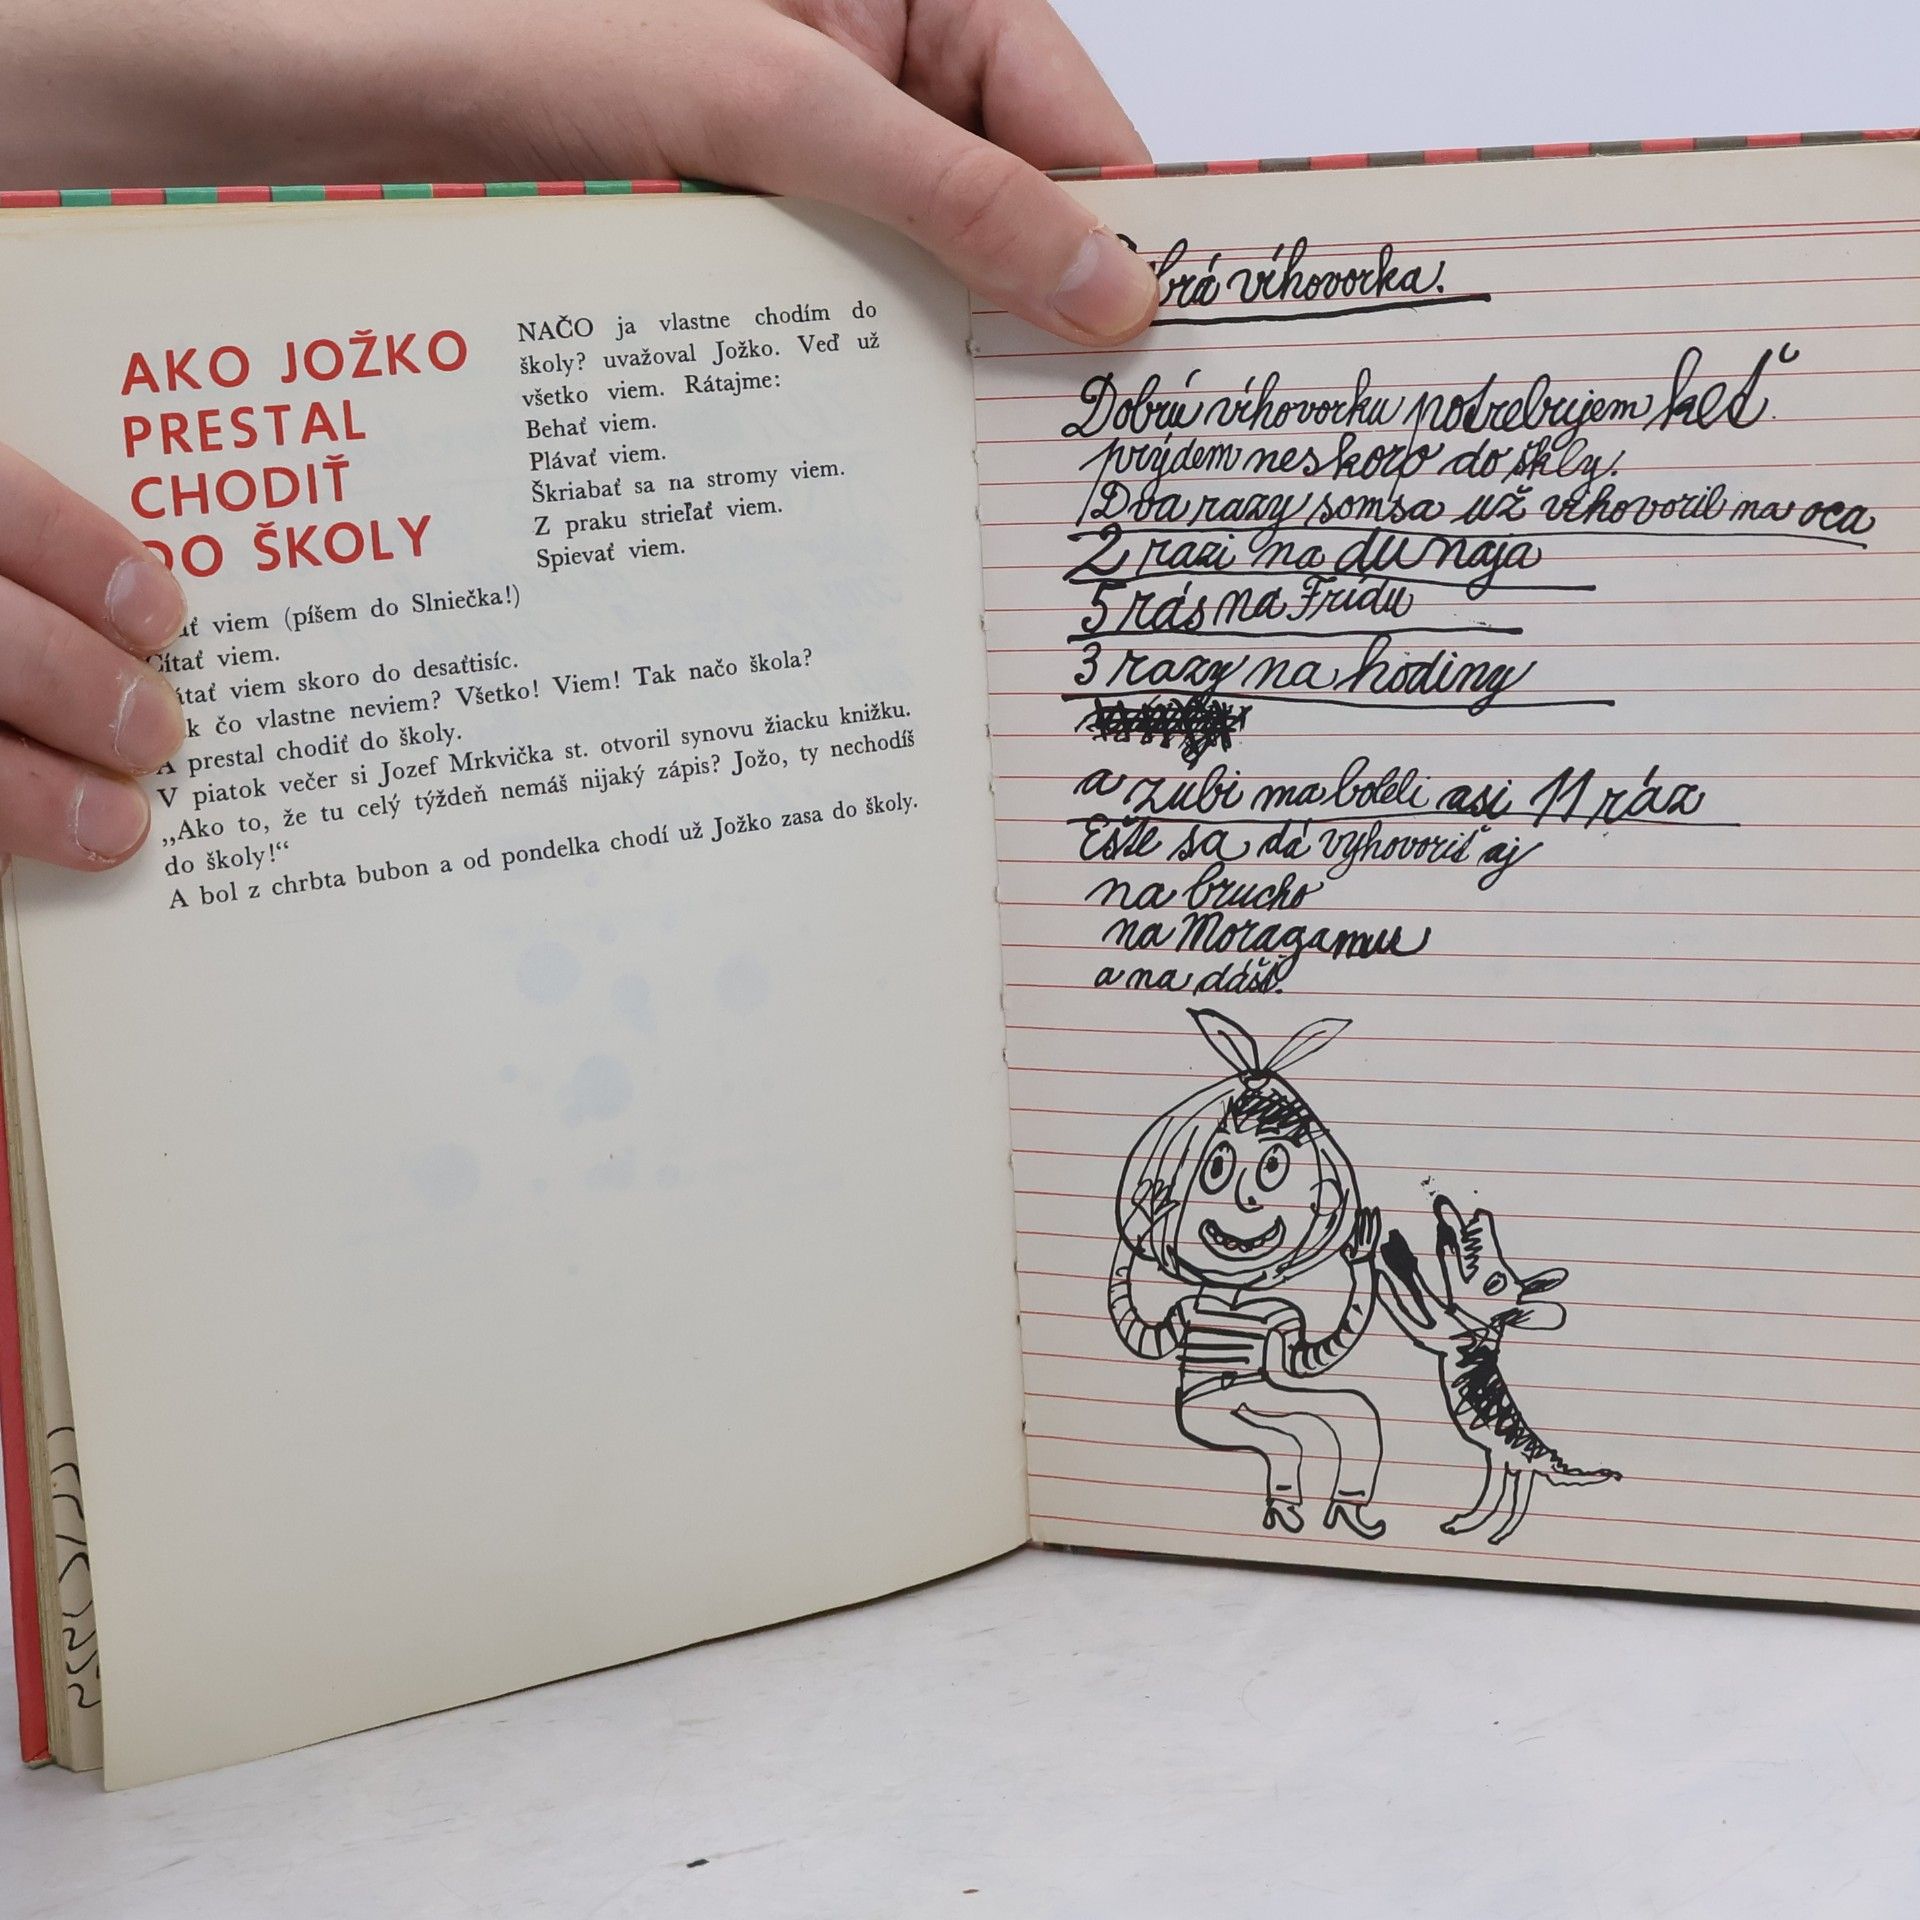 AKO JOŽKO
PRESTAL
CHODIŤ
DO ŠKOLY
NAČO ja vlastne chodím do
školy? uvažoval Jožko. Veď už
všetko viem. Rátajme:
Behať viem.
Plávať viem.
Škriabať sa na stromy viem.
Z praku strieľať viem.
Spievať viem.
viem (píšem do Slniečka!)
Čítať viem.
viem skoro do desaťtisíc.
čo vlastne neviem? Všetko! Viem! Tak načo škola?
A prestal chodiť do školy.
V piatok večer si Jozef Mrkvička st. otvoril synovu žiacku knižku.
„Ako to, že tu celý týždeň nemáš nijaký zápis? Jožo, ty nechodíš
do školy!“
A bol z chrbta bubon a od pondelka chodí už Jožko zasa do školy.
víhovorka.
Dobrú víhovorku potrebujem keď
prýdem neskoro do škly.
Dva razy som sa už vihovoril na oca
2 razi na dunaja
5 rás na Frídu
3 razy na hodiny
a zubi ma boleli asi 11 ráz
Ešte sa dá vyhovoriť aj
na brucho
na Moragamu
a na dášť.